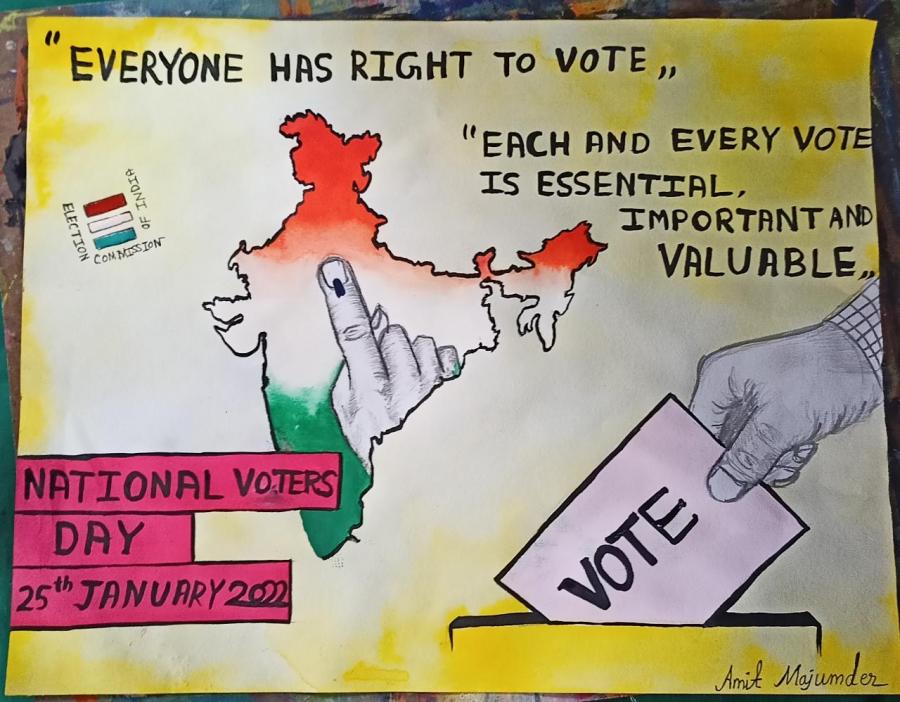 "EVERYONE HAS RIGHT TO VOTE„
"EACH AND EVERY VOTE
IS ESSENTIAL,
IMPORTANT AND
VALUABLE„
ELECTION
COMMISSION
OF INDIA
NATIONAL VOTERS
DAY
25th JANUARY 2022
VOTE
Amit Majumder